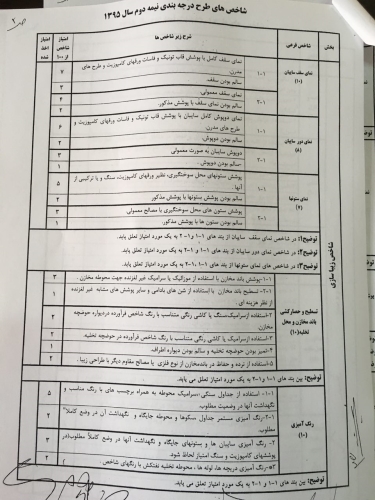 ۲
شاخص های طرح درجه بندی نیمه دوم سال ۱۳۹۵
بخش
شاخص فرعی
شرح زیر شاخص ها
امتیاز شاخص از ۱۰۰
امتیاز اخذ شده
شاخص زیبا سازی
نمای سقف سایبان
(۱۰)
۱-۱
نمای سقف کامل با پوشش قاب تونیک و فاسات ورقهای کامپوزیت و طرح های
مدرن.
۷
سالم بودن سقف.
۳
۲-۱
نمای سقف معمولی.
۴
سالم بودن نمای سقف با پوشش مذکور.
۲
نمای دور سایبان
(۸)
۱-۱
نمای دورپوش کامل سایبان با پوشش قاب تونیک و فاسات ورقهای کامپوزیت و
طرح های مدرن.
۶
سالم بودن دورپوش.
۲
۲-۱
دورپوش سایبان به صورت معمولی
۳
سالم بودن دورپوش.
۱
نمای ستونها
(۷)
۱-۱
پوشش ستونهای محل سوختگیری، نظیر ورقهای کامپوزیت، سنگ و یا ترکیبی از
آنها.
۵
سالم بودن پوشش ستونها با پوشش مذکور
۲
۲-۱
پوشش ستون های محل سوختگیری با مصالح معمولی
۳
سالم بودن ستون ها با پوشش مذکور.
۱
توضیح۱: در شاخص نمای سقف سایبان از بند های ۱-۱ و ۱-۲ به یک مورد امتیاز تعلق یابد.
توضیح۲: در شاخص نمای دور سایبان از بند های ۱-۱ و ۱-۲ به یک مورد امتیاز تعلق یابد.
توضیح۳: در شاخص های نمای ستونها از بند های ۱-۱ و ۱-۲ به یک مورد امتیاز تعلق یابد.
تسطیح و حصارکشی
باند مخازن و محل
تخلیه (۱۰)
۱-۱-پوشش باند مخازن با استفاده از موزائیک یا سرامیک غیر لغزنده جهت محوطه مخازن.
۳
۱-۲- تسطیح باند مخازن با استفاده از شن های بادامی و سایر پوشش های مشابه غیر لغزنده
از نظر هزینه ای.
۱
۲-استفاده ازسرامیک،سنگ یا کاشی رنگی متناسب با رنگ شاخص فرآورده در دیواره حوضچه
مخازن.
۲
۳-استفاده از سرامیک یا کاشی رنگی متناسب با رنگ شاخص فرآورده در حوضچه تخلیه.
۴-تمیز بودن حوضچه تخلیه و سالم بودن دیواره اطراف.
۵-استفاده از نرده و حفاظ در باندمخازن از نوع فلزی یا مصالح مقاوم دیگر با طراحی زیبا.
توضیح: بین بند های ۱-۱ و ۱-۲ به یک مورد امتیاز تعلق می یابد.
رنگ آمیزی
(۱۰)
۱-۱- استفاده از جداول سنگی،سرامیک محوطه به همراه برچسب های با رنگ مناسب و
نگهداشت آنها در وضعیت مطلوب.
۵
۱-۲-رنگ آمیزی مستمر جداول سکوها و محوطه جایگاه و نگهداشت آن در وضع کاملاً
مطلوب
۲- رنگ آمیزی سایبان ها و ستونهای جایگاه و نگهداشت آنها در وضع کاملاً مطلوب(در
پوششهای کامپوزیت و سنگ امتیاز لحاظ شود.
۳- رنگ آمیزی دریچه ها، لوله ها ، محوطه تخلیه نفتکش با رنگهای شاخص
توضیح: بین بند های ۱-۱ و ۱-۲ به یک مورد امتیاز تعلق می یابد.